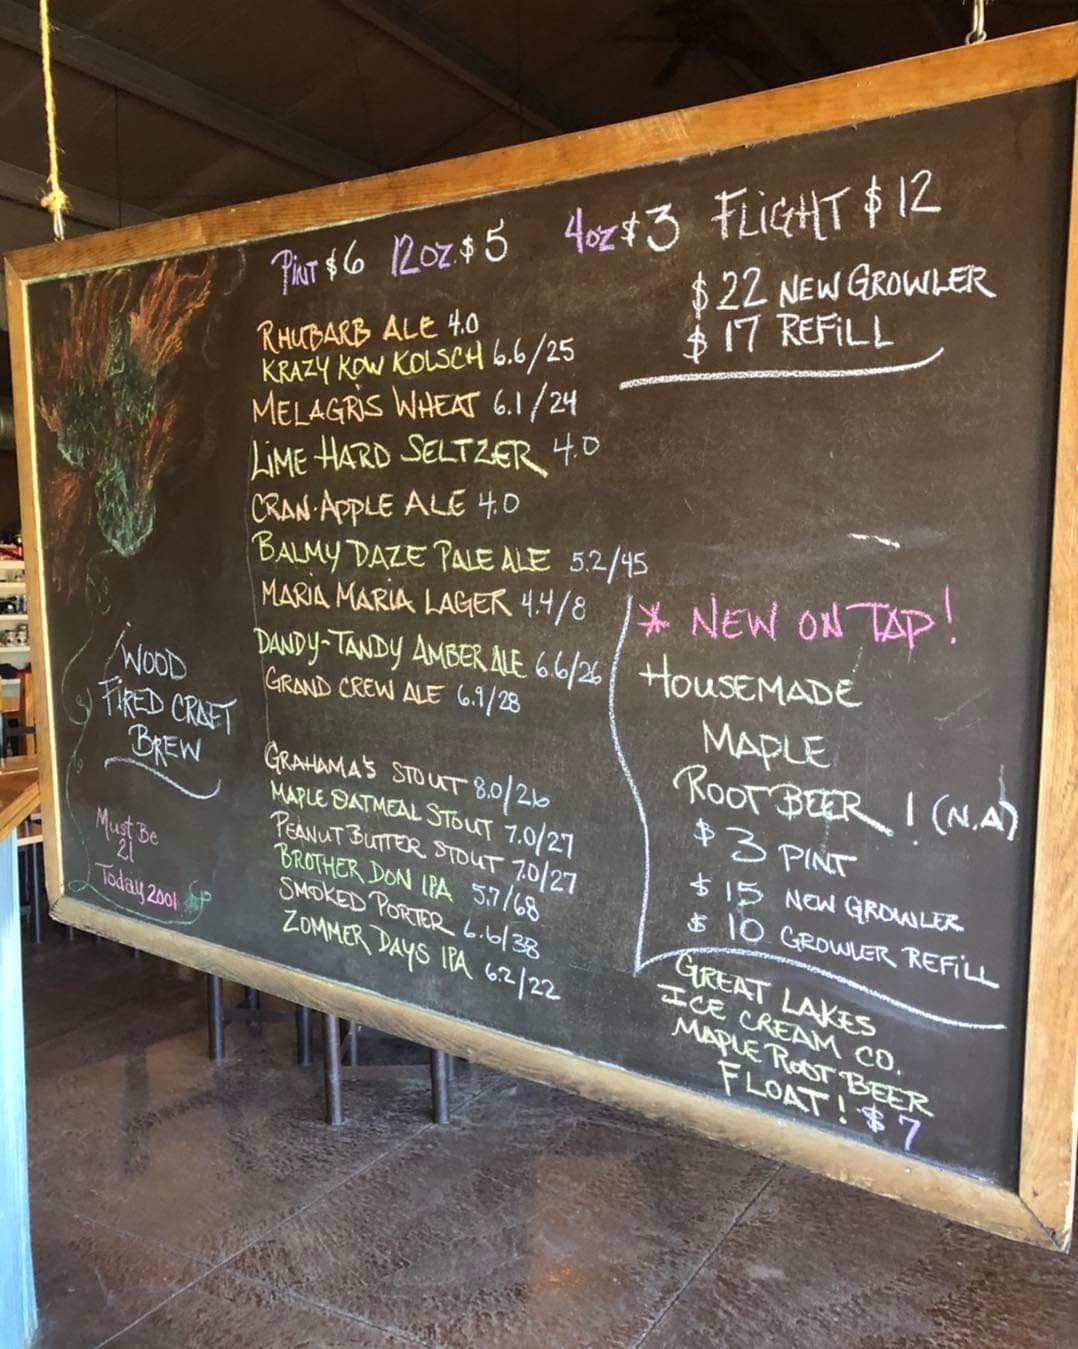 PINT $6 12OZ. $5 4OZ $3 FLIGHT $12
$22 NEW GROWLER
$17 REFILL
RHUBARB ALE 4.0
KRAZY KOW KOLSCH 6.6/25
MELAGRIS WHEAT 6.1/24
LIME HARD SELTZER 4.0
CRAN-APPLE ALE 4.0
BALMY DAZE PALE ALE 5.2/45
MARIA MARIA LAGER 4.4/8
DANDY-TANDY AMBER ALE 6.6/26
GRAND CREW ALE 6.9/28
GRAHAMA'S STOUT 8.0/26
MAPLE OATMEAL STOUT 7.0/27
PEANUT BUTTER STOUT 7.0/27
BROTHER DON IPA 5.7/68
SMOKED PORTER 6.6/38
ZOMMER DAYS IPA 6.2/22
WOOD
FIRED CRAFT
BREW
Must Be
21
Today 2001
* NEW ON TAP!
HOUSEMADE
MAPLE
ROOT BEER! (N.A)
$3 PINT
$15 NEW GROWLER
$10 GROWLER REFILL
GREAT LAKES
ICE CREAM CO.
MAPLE ROOT BEER
FLOAT! $7